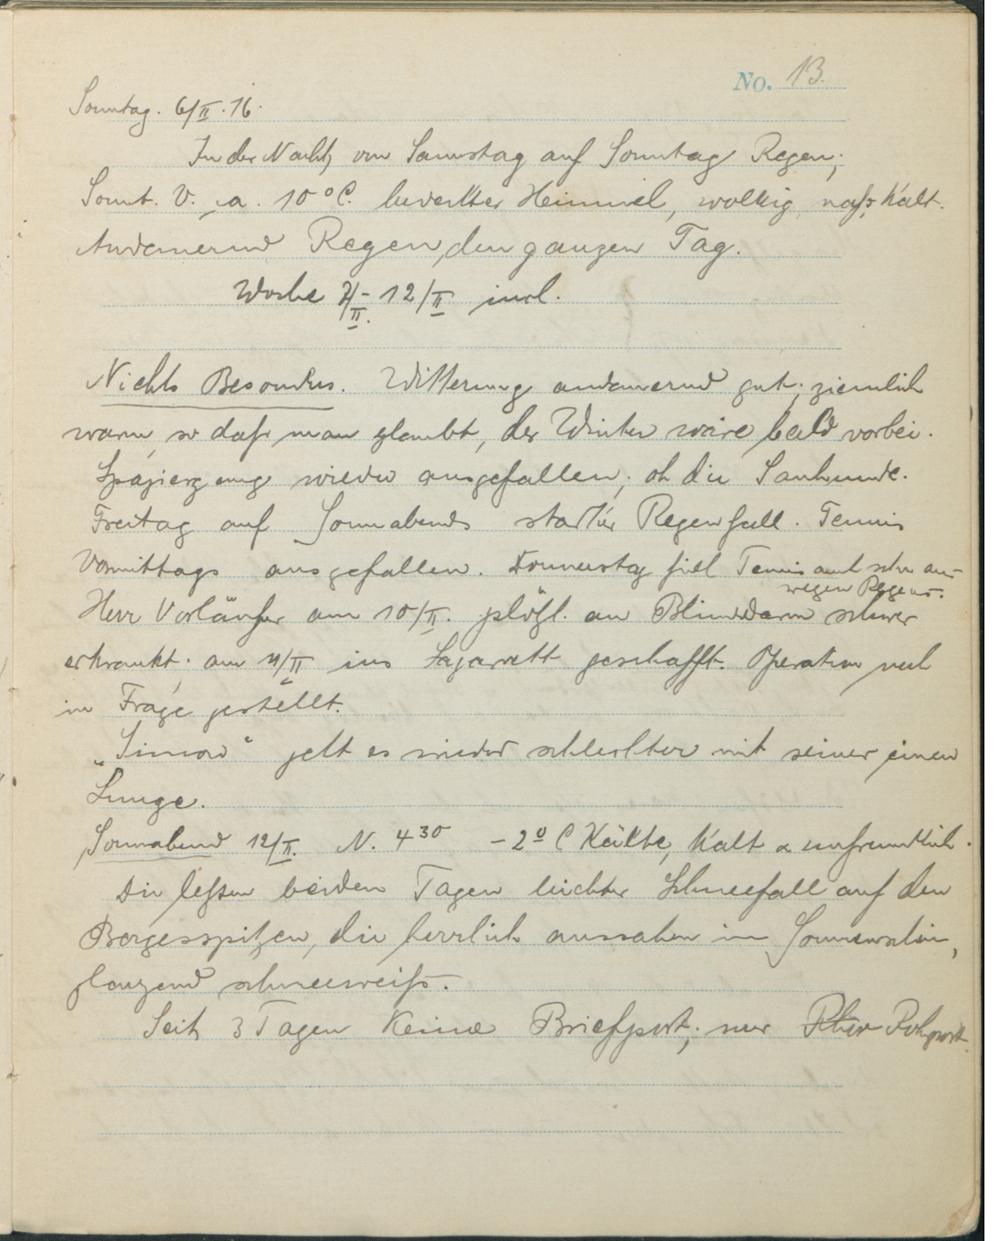 No. 13.
Sonntag. 6/II.16.
In der Nacht, von Samstag auf Sonntag Regen;
Sonnt. V. a. 10°C. bedeckter Himmel, wolkig, naß, kalt.
Andauernd Regen, den ganzen Tag.
Woche 7/II - 12/II incl.
Nichts Besondres. Witterung andauernd gut; ziemlich
warm, so daß man glaubt, der Winter wäre bald vorbei.
Spaziergang wieder ausgefallen; oh die
Freitag auf Sonnabend starker Regenfall. Tennis
Vormittags ausgefallen. Donnerstag fiel Tennis auch schon aus
wegen Regens.
Herr Vorläufer am 10/II. plötzl. an Blinddarm schwer
erkrankt; am 11/II ins Lazarett geschafft. Operation
in Frage gestellt.
"Simon" geht es wieder schlechter mit seiner einen
Lunge.
Sonnabend 12/II. N. 4³⁰ -2° C Kälte, kalt & unfreundlich.
Die letzten beiden Tagen leichter Schneefall auf den
Bergesspitzen, die herrlich aussahen im Sonnenschein,
glänzend schneeweiß.
Seit 3 Tagen keine Briefpost; nur